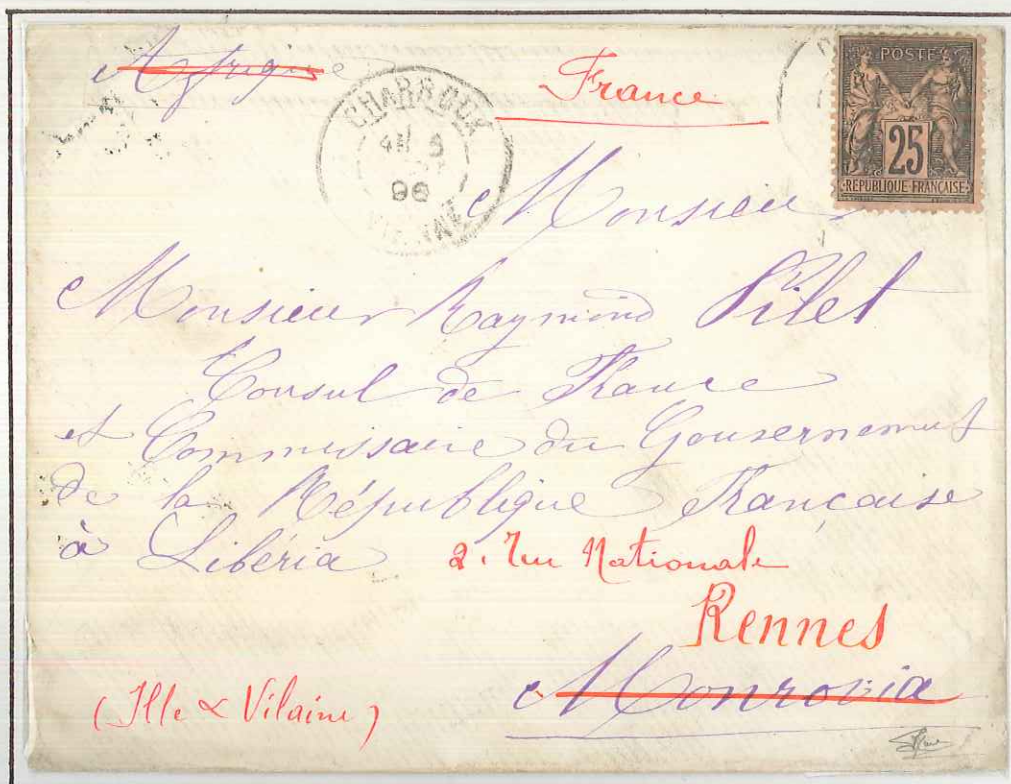 Afrique
France
CHARROUX
5
96
VIENNE
POSTE
25
RÉPUBLIQUE FRANÇAISE
Monsieur
Monsieur Raymond Pilet
Consul de France
et Commissaire du Gouvernement
de la République Française
à Libéria
2. rue Nationale
Rennes
Monrovia
(Ille & Vilaine)